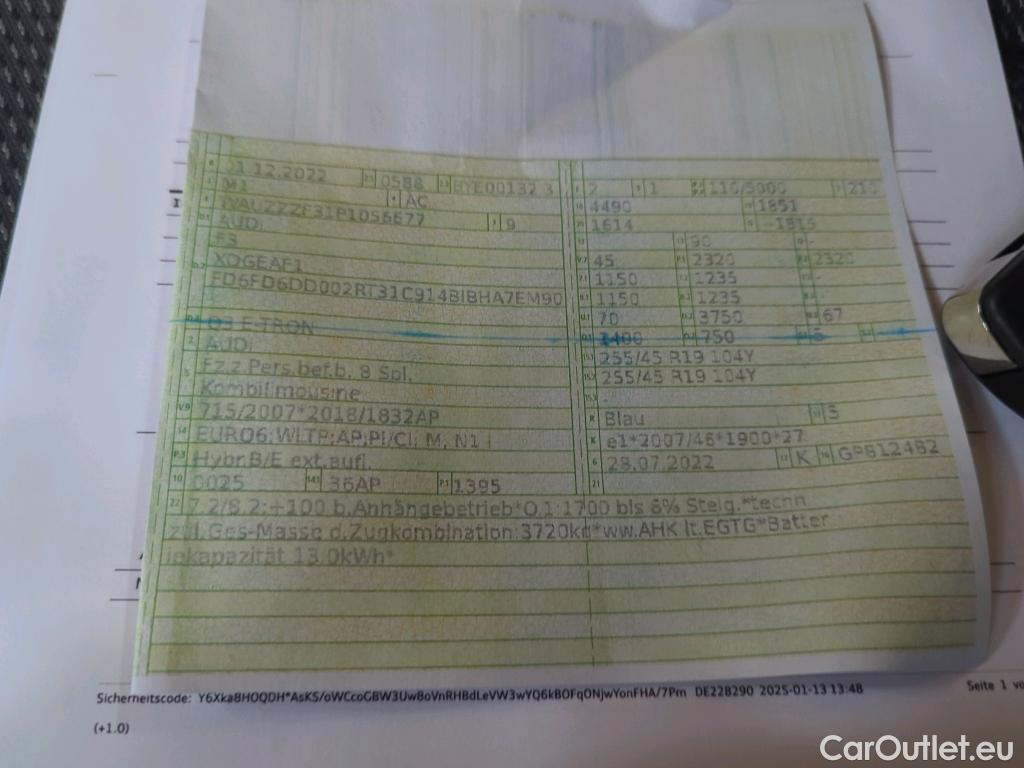 01.12.2022 0588 BYE00132 3
M1 AC
WAUZZZF31P1056677 9
AUDI
F3
XDGEAF1
FD6FD6DD002RT31C914BIBHA7EM90
Q3 E-TRON
AUDI
Fz.z.Pers.bef.b. 8 Spl.
Kombilimousine
715/2007*2018/1832AP
EURO6;WLTP;AP;PI/CI; M, N1 I
Hybr.B/E ext.aufl.
10 0025 14.1 36AP P.1 1395
2 1 110/5000 210
4490 1851
1614 -1815
90 -
45 2320 2320
1150 1235 -
1150 1235
70 3750 67
1400 750 5
255/45 R19 104Y
255/45 R19 104Y
-
R Blau 11 5
K e1*2007/46*1900*27
6 28.07.2022 17 K 16 GP812482
21
22 7.2/8.2:+100 b.Anhängebetrieb*O.1:1700 bis 8% Steig.*techn
zul.Ges-Masse d.Zugkombination:3720kg*ww.AHK lt.EGTG*Batter
iekapazität 13.0kWh*
Seite 1
(+1.0)
CarOutlet.eu
DE228290 2025-01-13 13:48
Sicherheitscode: